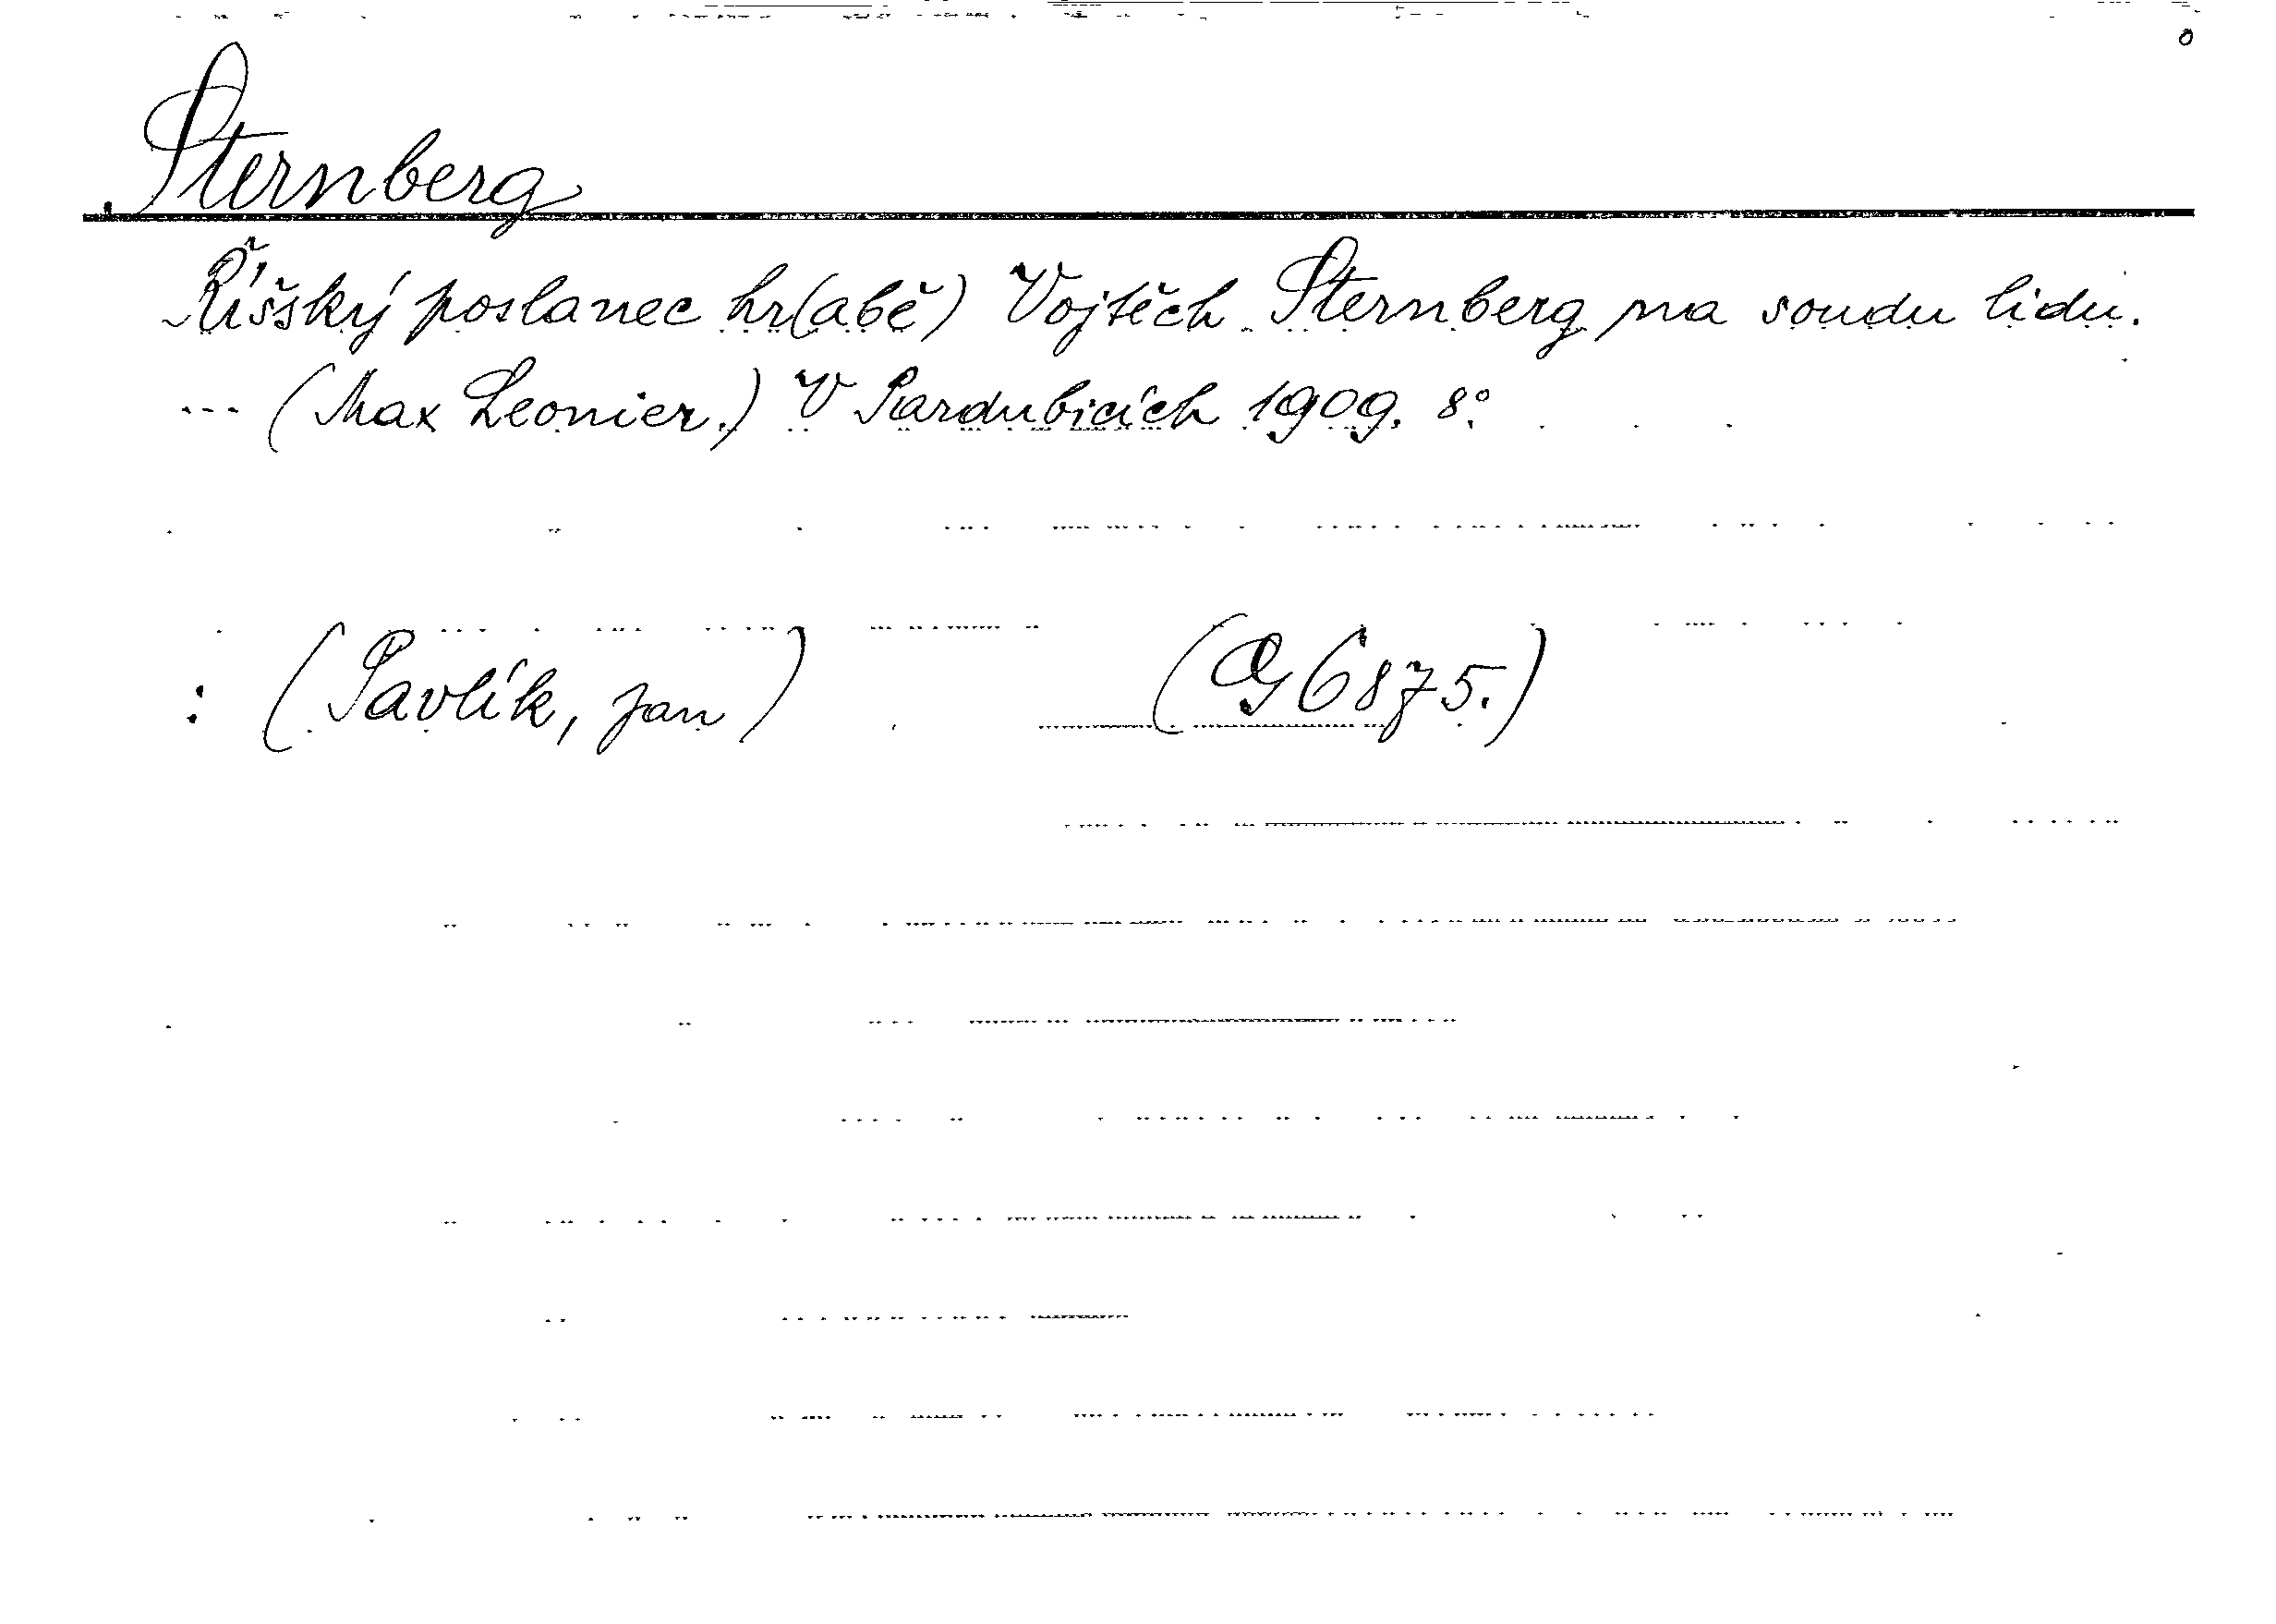 Sternberg
Říšský poslanec hr(abě) Vojtěch Sternberg na soudu lidu.
--- (Max Leonier.) V Pardubicích 1909. 8°.
: (Pavlík, Jan) (G 6875.)